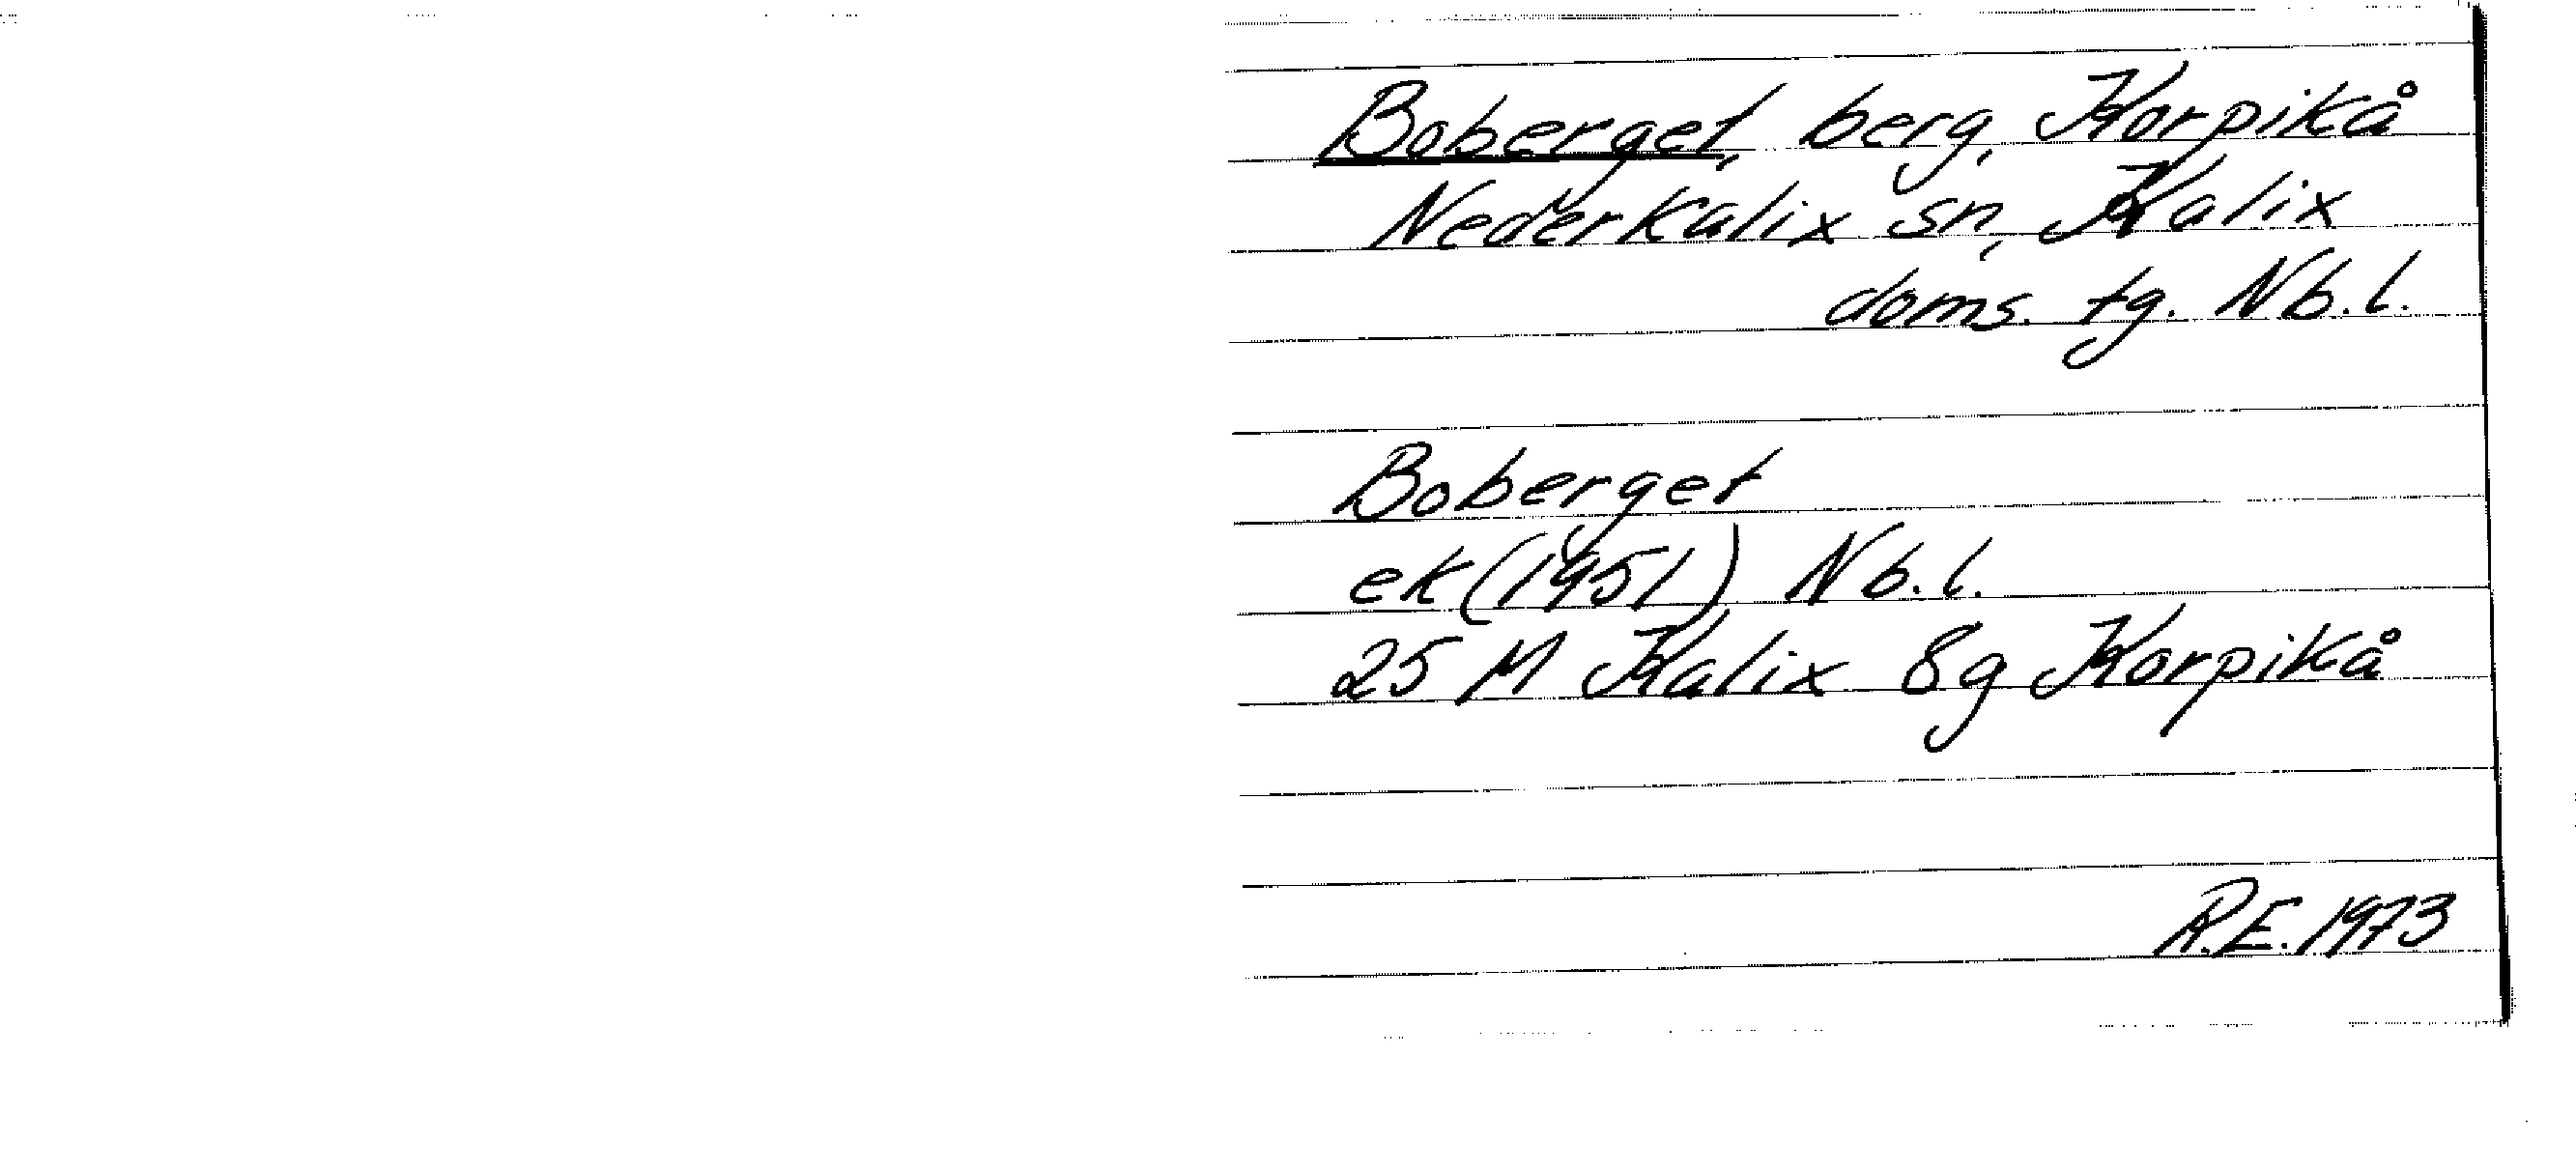 Boberget, berg, Korpikå
Nederkalix sn, Kalix
doms. tg. Nb.l.
Boberget
ek (1951) Nb.l.
25 M Kalix 8g Korpikå
R.E. 1973